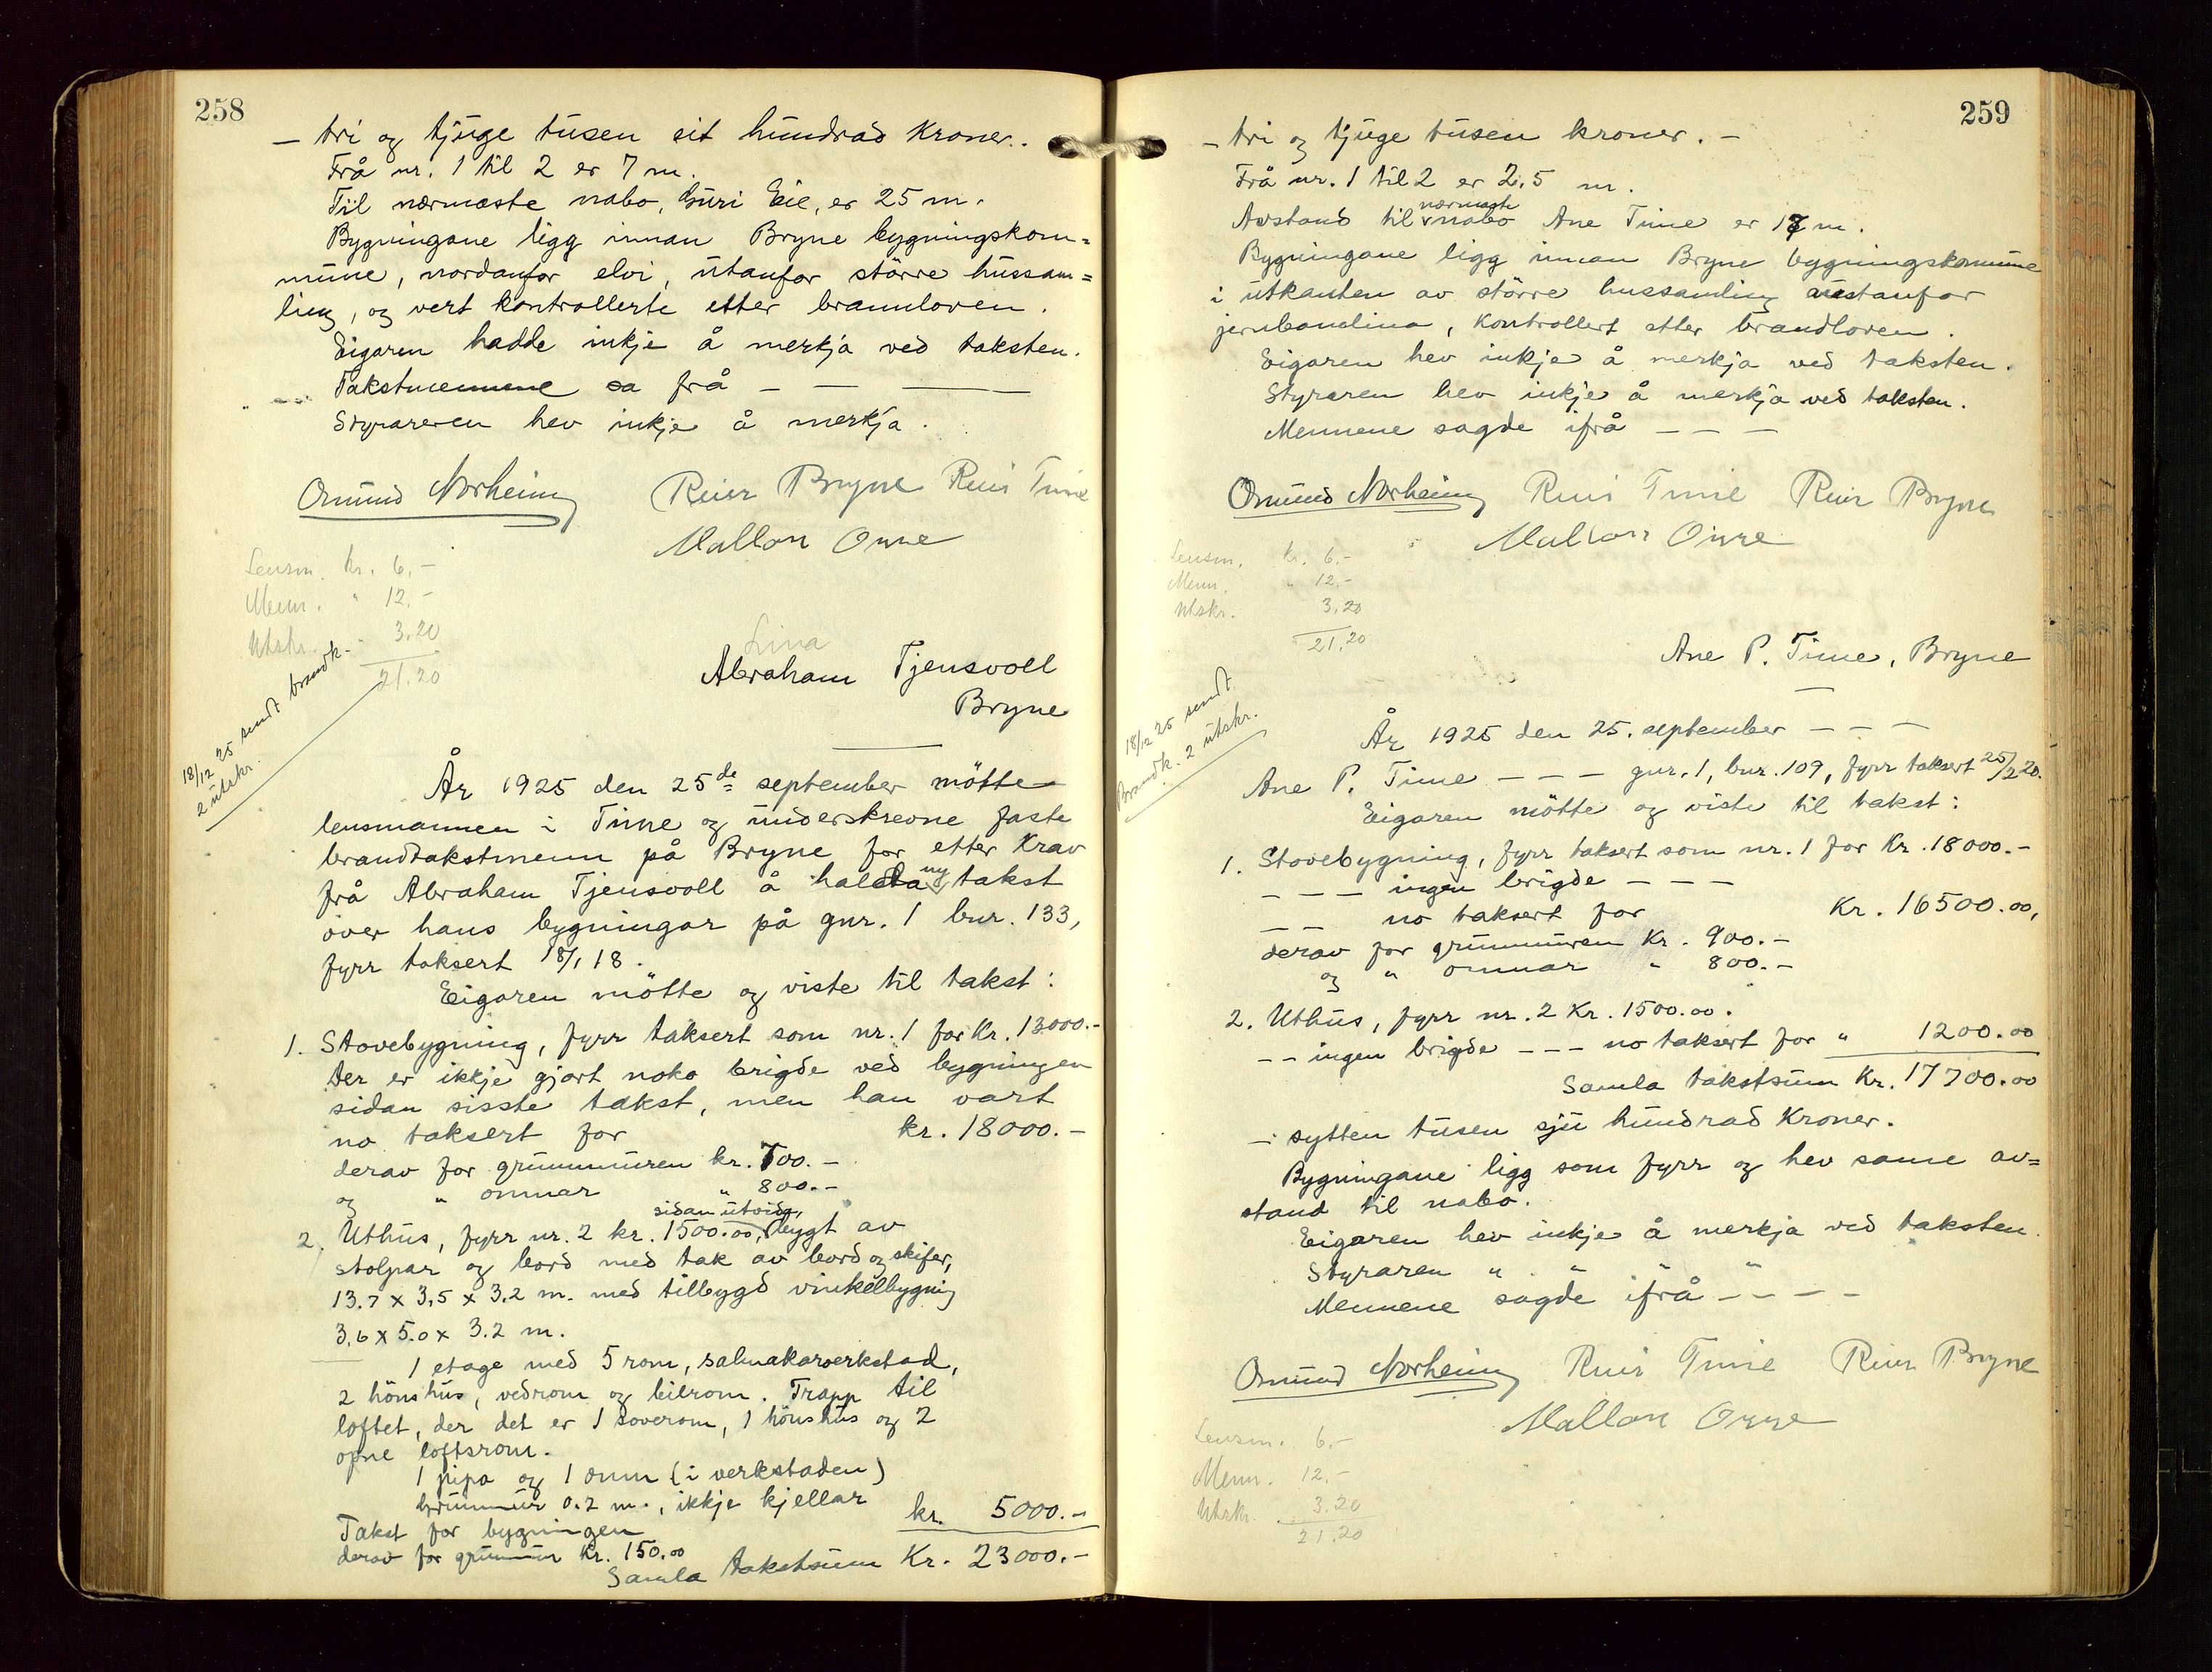 258
— tri og tjuge tusen eit hundrad Kroner..
Frå nr. 1 til 2 er 7 m.
Til nærmaste nabo, Guri Eie, er 25 m.
Bygningane ligg innan Bryne bygningskom=
mune, nordanfor elvi, utanfor större hussam=
ling, og vert kontrollerte etter brannloven.
Eigaren hadde inkje å merkja ved taksten.
Takstmennene sa frå — — —
Styraren hev inkje å merkja.
Osmund Norheim Reier Bryne Reier Time
Mallon Orre
Lensm. kr. 6,-
Menn. " 12.-
Utskr. - 3.20
21.20
18/12 25 sendt brandk.
2 utskr.
Lina
Abraham Tjensvoll
Bryne
År 1925 den 25de september mötte
lensmannen i Time og underskrevne faste
brandtakstmenn på Bryne for etter Krav
frå Abraham Tjensvoll å halda ny takst
över hans bygningar på gnr. 1 bnr. 133,
fyrr taksert 18/1 18.
Eigaren mötte og viste til takst:
1. Stovebygning, fyrr taksert som nr. 1 for Kr. 13000.-
Der er ikkje gjort noko brigde ved bygningen
sidan sisste takst, men han vart
no taksert for kr. 18000.-
derav for grunnmuren kr. 700.-
og " omnar " 800.-
sidan utvida,
2. Uthus, fyrr nr. 2 kr. 1500.00, bygt av
stolpar og bord med tak av bord og skifer,
13.7 x 3,5 x 3.2 m. med tilbygd vinkelbygning
3.6 x 5.0 x 3.2 m.
1 etage med 5 rom, salmakarverkstad,
2 hönshus, vedrom og bilrom. Trapp til
loftet, der det er 1 soverom, 1 hönshus og 2
opne loftsrom.
1 pipa og 1 omn (i verkstaden)
Grunnmur 0.2 m., ikkje kjellar
Takst for bygningen kr. 5000.-
derav for grunnmur Kr. 150.00
Samla takstsum Kr. 23000.-
259
— tri og tjuge tusen kroner. —
Frå nr. 1 til 2 er 2.5 m.
nærmaste
Avstand til nabo Ane Time er 17 m.
Bygningane ligg innan Bryne bygningskommune
i utkanten av större hussamling austanfor
jernbanelina, Kontrollert etter brandloven.
Eigaren hev inkje å merkja ved taksten.
Styraren hev inkje å merkja ved taksten.
Mennene sagde ifrå — — —
Osmund Norheim Reier Time Reier Bryne
Mallon Orre
Lensm. kr. 6.-
Menn. " 12.-
Utskr. 3.20
21.20
18/12 25 sendt
Brandk. 2 utskr.
Ane P. Time, Bryne
År 1925 den 25. september — — —
Ane P. Time — — — gnr. 1, bnr. 109, fyrr taksert 25/2 20.
Eigaren mötte og viste til takst:
1. Stovebygning, fyrr taksert som nr. 1 for Kr. 18000.-
— — — ingen brigde — — —
— — no taksert for Kr. 16500.00,
derav for grunnmuren Kr. 900.-
og " omnar " 800.-
2. Uthus, fyrr nr. 2 Kr. 1500.00.
— — ingen brigde — — — no taksert for " 1200.00
Samla takstsum Kr. 17700.00
— sytten tusen sju hundrad Kroner.
Bygningane ligg som fyrr og hev same av=
stand til nabo.
Eigaren hev inkje å merkja ved taksten.
Styraren " " " "
Mennene sagde ifrå — — — —
Osmund Norheim Reier Time Reier Bryne
Mallon Orre
Lensm. 6.-
Menn. 12.-
Utskr. 3.20
21.20